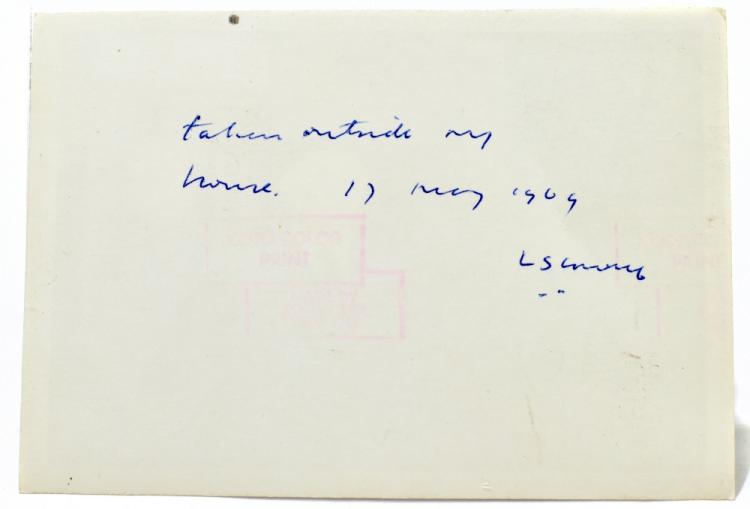 taken outside my
house. 17 may 1969
L S Lowry